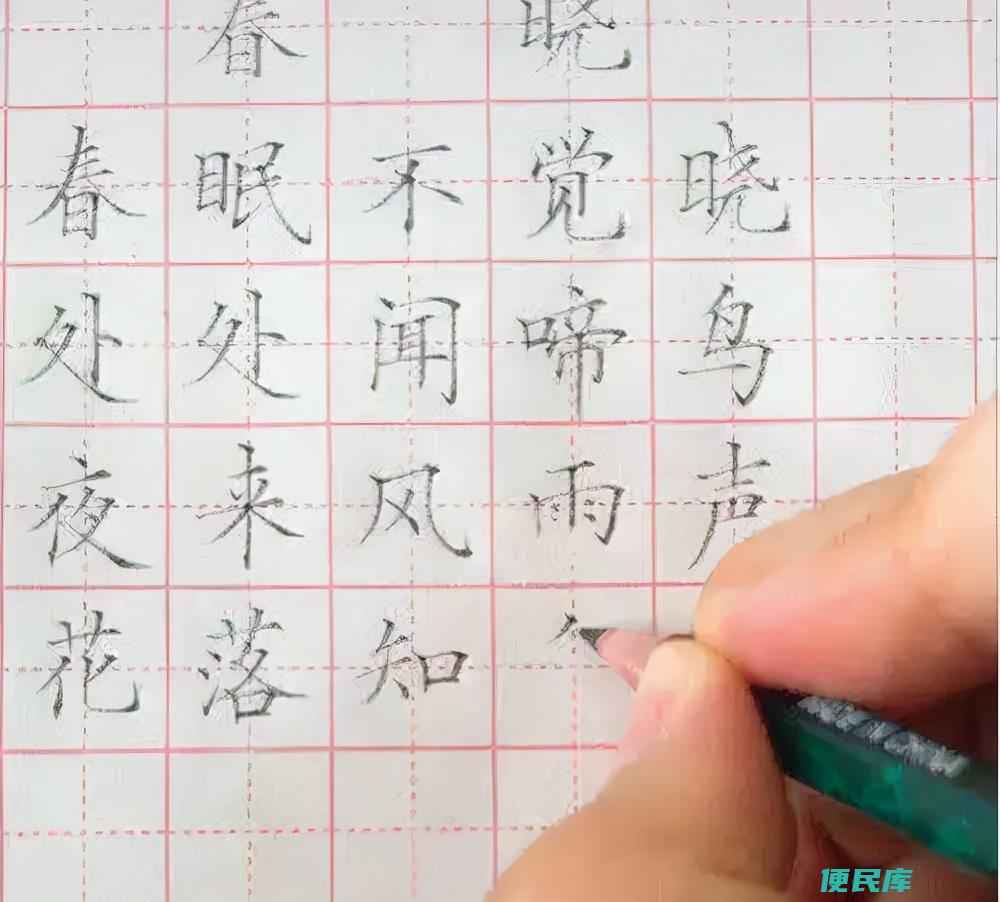 春晓
春眠不觉晓
处处闻啼鸟
夜来风雨声
花落知
便民库